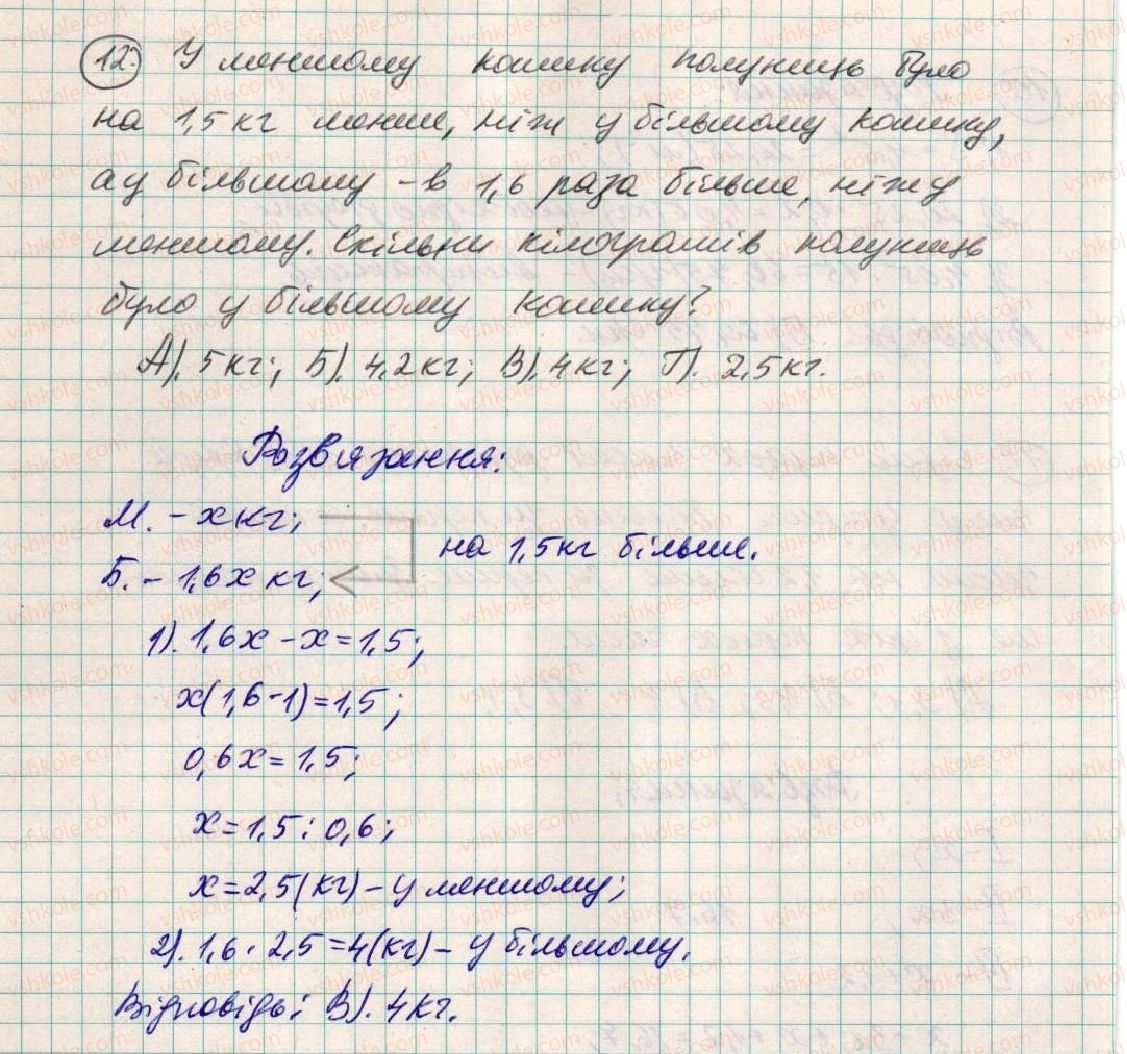 12. У меншому кошику полуниць було
на 1,5 кг менше, ніж у більшому кошику,
а у більшому – в 1,6 раза більше, ніж у
меншому. Скільки кілограмів полуниць
було у більшому кошику?
А). 5 кг; Б). 4,2 кг; В). 4 кг; Г). 2,5 кг.
Розв'язання:
М. – х кг;
на 1,5 кг більше.
Б. – 1,6х кг;
1). 1,6х – х = 1,5;
х(1,6-1) = 1,5;
0,6х = 1,5;
х = 1,5 : 0,6;
х = 2,5 (кг) – у меншому;
2). 1,6 · 2,5 = 4 (кг) – у більшому.
Відповідь: В). 4 кг.
vshkole.com